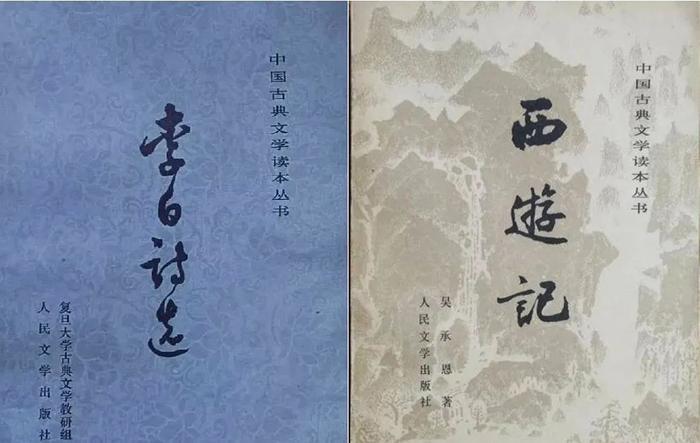 中国古典文学读本丛书
李白诗选
复旦大学古典文学教研组
人民文学出版社
中国古典文学读本丛书
西遊記
吴承恩著
人民文学出版社